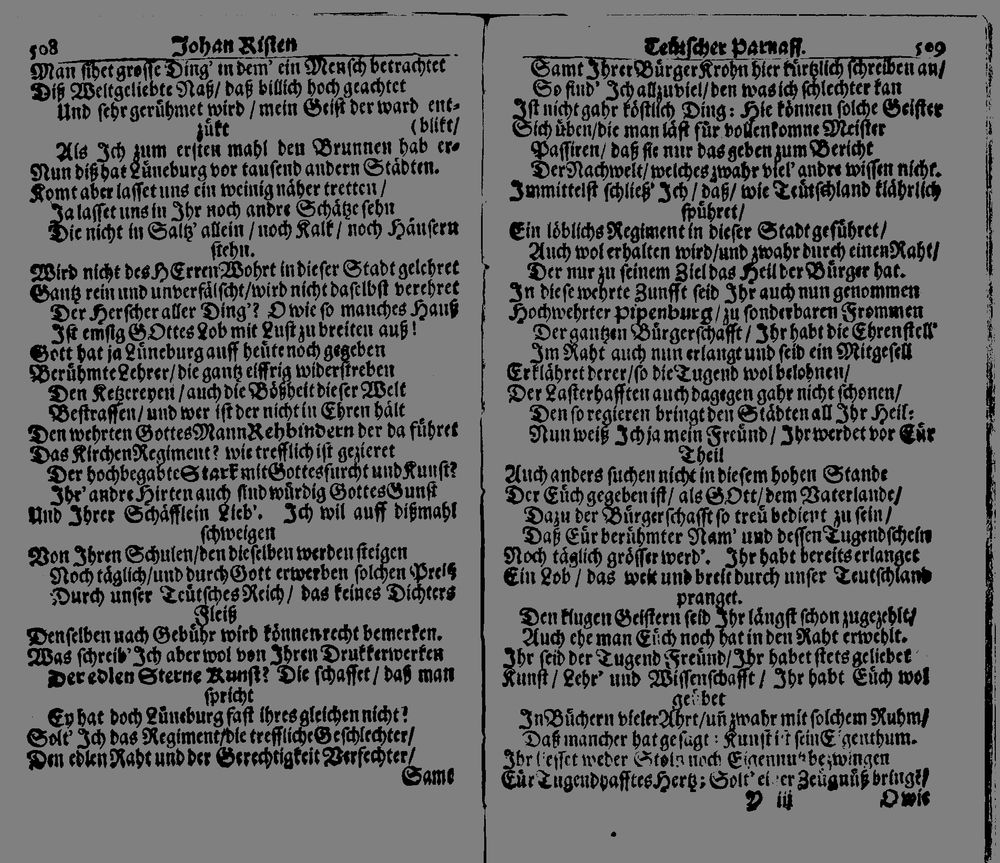 508 Johan Risten
Man sihet grosse Ding' in dem' ein Mensch betrachtet
Diß Weltgeliebte Naß/ daß billich hoch geachtet
Und sehr gerühmet wird/ mein Geist der ward ent-
zükt (blikt/
Als Ich zum ersten mahl den Brunnen hab er-
Nun diß hat Lüneburg vor tausend andern Städten.
Komt aber lasset uns ein weinig näher tretten/
Ja lasset uns in Ihr noch andre Schätze sehn
Die nicht in Saltz' allein/ noch Kalk/ noch Häusern
stehn.
Wird nicht des HErren Wohrt in dieser Stadt gelehret
Gantz rein und unverfälscht/ wird nicht daselbst verehret
Der Herscher aller Ding'? O wie so manches Hauß
Ist emsig GOttes Lob mit Lust zu breiten auß!
Gott hat ja Lüneburg auff heüte noch gegeben
Berühmte Lehrer/ die gantz eiffrig widerstreben
Den Ketzereyen/ auch die Bößheit dieser Welt
Bestraffen/ und wer ist der nicht in Ehren hält
Den wehrten Gottes Mann Rehbindern der da führet
Das Kirchen Regiment? wie trefflich ist gezieret
Der hochbegabte Stark mit Gottesfurcht und Kunst?
Ihr' andre Hirten auch sind würdig Gottes Gunst
Und Ihrer Schäfflein Lieb'. Ich wil auff dißmahl
schweigen
Von Ihren Schulen/ den dieselben werden steigen
Noch täglich/ und durch Gott erwerben solchen Preiß
Durch unser Teütsches Reich/ das keines Dichters
Fleiß
Denselben nach Gebühr wird können recht bemerken.
Was schreib' Ich aber wol von Ihren Drukkerwerken
Der edlen Sterne Kunst? Die schaffet/ daß man
spricht
Ey hat doch Lüneburg fast ihres gleichen nicht?
Solt' Ich das Regiment/ die treffliche Geschlechter/
Den edlen Raht und der Gerechtigkeit Verfechter/
Samt
Teütscher Parnass. 509
Samt Ihrer Bürger Krohn hier kürtzlich schreiben an/
So find' Ich allzuviel/ den was ich schlechter kan
Ist nicht gahr köstlich Ding: Hie können solche Geister
Sich üben/ die man läst für vollenkomne Meister
Passiren/ daß sie nur das geben zum Bericht
Der Nachwelt/ welches zwahr viel' andre wissen nicht.
Immittelst schließ' Ich/ daß/ wie Teütschland klährlich
spühret/
Ein löblichs Regiment in dieser Stadt geführet/
Auch wol erhalten wird/ und zwahr durch einen Raht/
Der nur zu seinem Ziel das Heil der Bürger hat.
In diese wehrte Zunfft seid Ihr auch nun genommen
Hochwehrter Pipenburg/ zu sonderbaren Frommen
Der gantzen Bürgerschafft/ Ihr habt die Ehrenstell'
Im Raht auch nun erlangt und seid ein Mitgesell
Erklähret derer/ so die Tugend wol belohnen/
Der Lasterhafften auch dagegen gahr nicht schonen/
Den so regieren bringt den Städten all Ihr Heil:
Nun weiß Ich ja mein Freünd/ Ihr werdet vor Eür
Theil
Auch anders suchen nicht in diesem hohen Stande
Der Eüch gegeben ist/ als GOtt/ dem Vaterlande/
Dazu der Bürgerschafft so treü bedient zu sein/
Daß Eür berühmter Nam' und dessen Tugendschein
Noch täglich grösser werd'. Ihr habt bereits erlanget
Ein Lob/ das weit und breit durch unser Teutschland
pranget.
Den klugen Geistern seid Ihr längst schon zugezehlt/
Auch ehe man Eüch noch hat in den Raht erwehlt.
Ihr seid der Tugend Freünd/ Ihr habet stets geliebet
Kunst/ Lehr' und Wissenschafft/ Ihr habt Eüch wol
geübet
In Büchern vieler Ahrt/ uñ zwahr mit solchem Ruhm/
Daß mancher hat gesagt: Kunst ist sein Eigenthum.
Ihr lesset weder Stoltz noch Eigennutz bezwingen
Eür Tugendhafftes Hertz; Solt' einer Zeügnüß bringe/
Y iij O wie